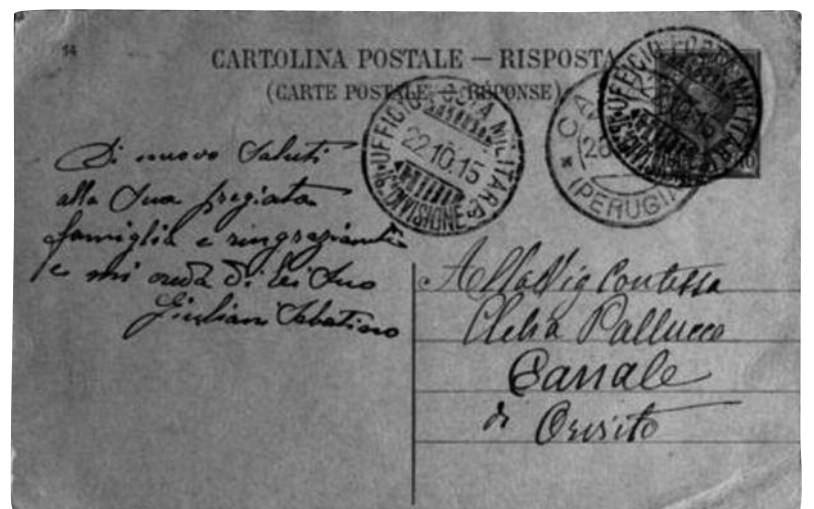 14
CARTOLINA POSTALE — RISPOSTA
(CARTE POSTALE — RÉPONSE)
UFFICIO POSTA MILITARE
22.10.15
DIVISIONE
UFFICIO POSTA MILITARE
10.15
CA
(PERUGIA
10
Di nuovo saluti
alla Sua pregiata
famiglia e ringraziandola
e mi creda di lei Suo
Giuliani Sabatino
Alla Sig Contessa
Clelia Pallucco
Canale
di Orvieto